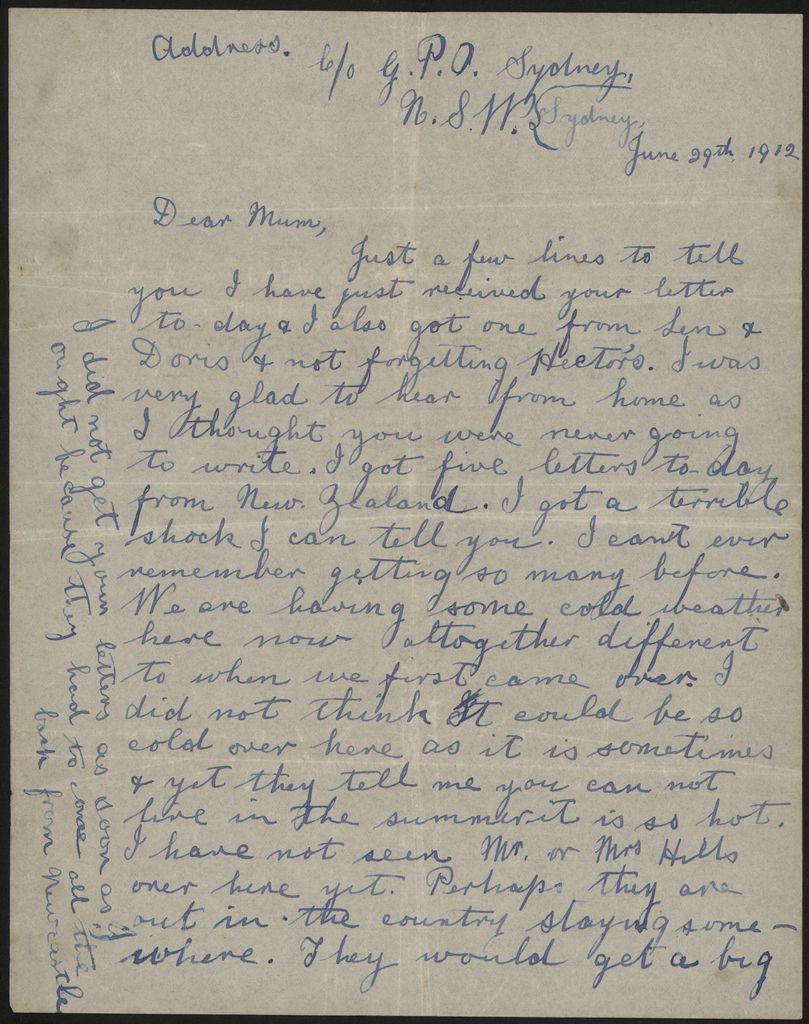 Address. C/o G.P.O. Sydney,
N.S.W. Sydney,
June 29th, 1912
Dear Mum,
Just a few lines to tell
you I have just received your letter
to-day & I also got one from Len &
Doris & not forgetting Hector's. I was
very glad to hear from home as
I thought you were never going
to write. I got five letters to-day
from New Zealand. I got a terrible
shock I can tell you. I can't ever
remember getting so many before.
We are having some cold weather
here now altogether different
to when we first came over. I
did not think It could be so
cold over here as it is sometimes
& yet they tell me you can not
live in the summer it is so hot.
I have not seen Mr. or Mrs Hills
over here yet. Perhaps they are
out in the country staying some-
where. They would get a big
I did not get your letters as soon as I
ought because they had to come all the
back from Newcastle